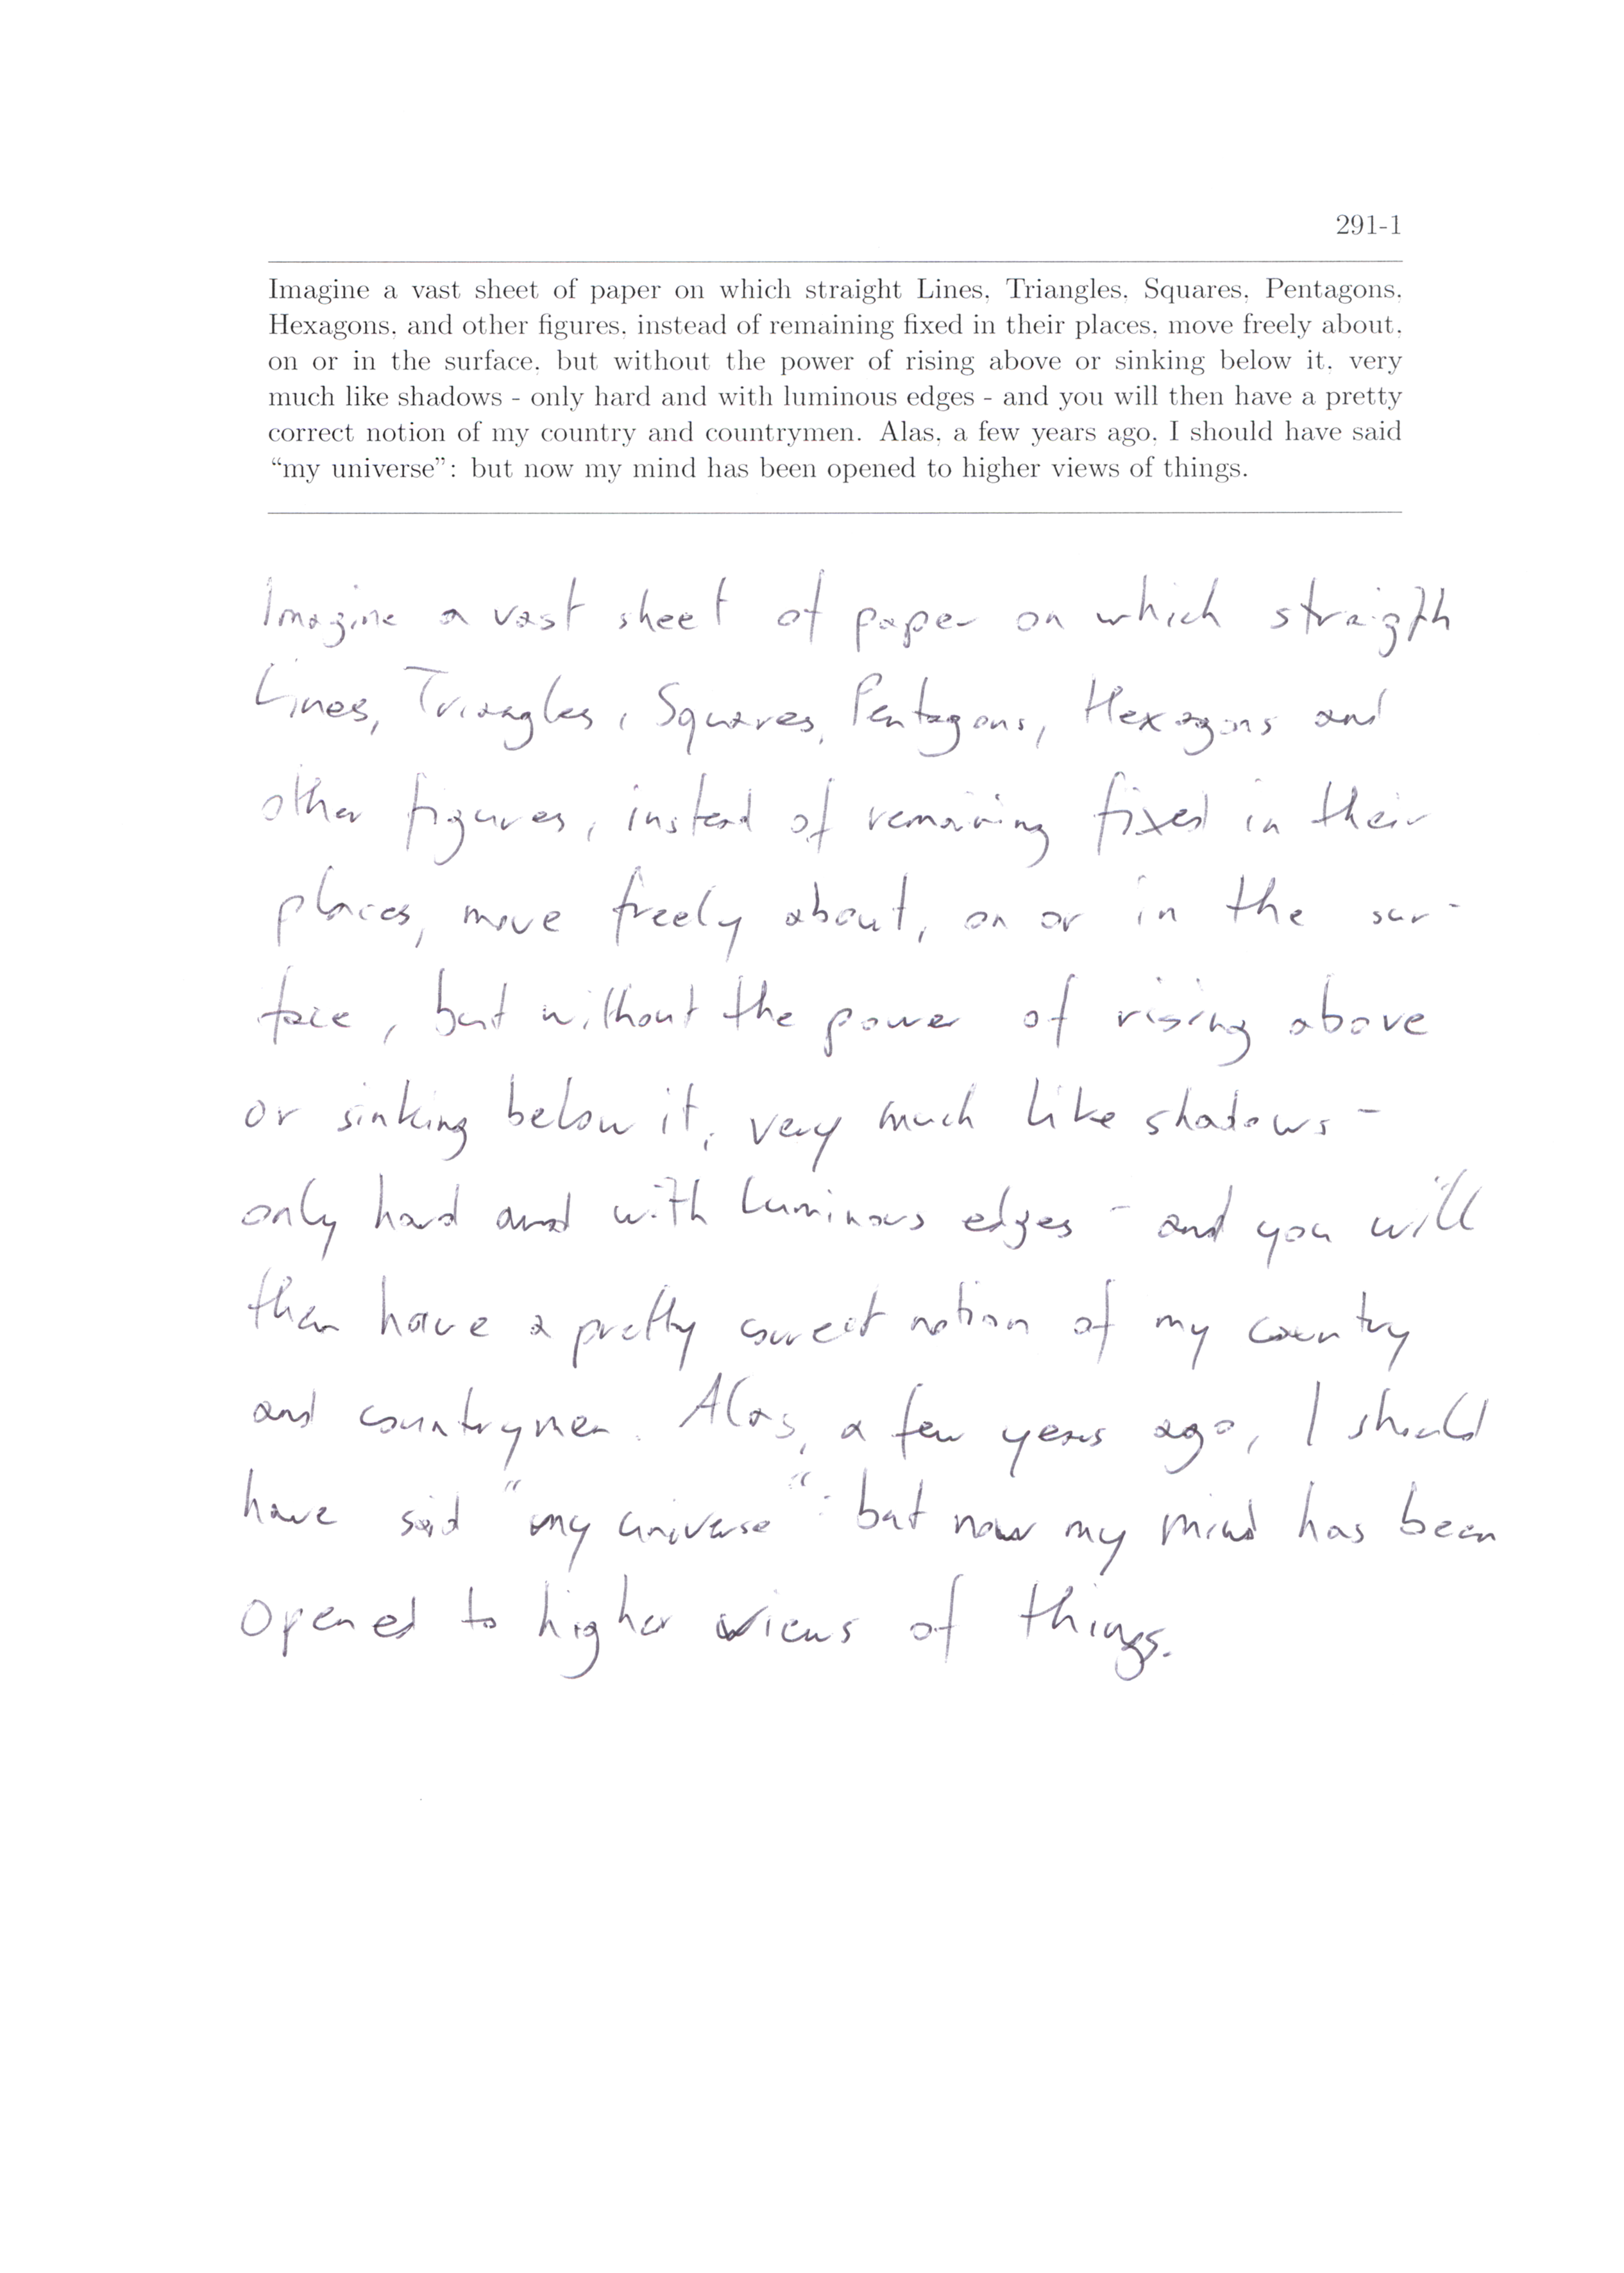 291-1
Imagine a vast sheet of paper on which straight Lines, Triangles, Squares, Pentagons,
Hexagons, and other figures, instead of remaining fixed in their places, move freely about,
on or in the surface, but without the power of rising above or sinking below it, very
much like shadows - only hard and with luminous edges - and you will then have a pretty
correct notion of my country and countrymen. Alas, a few years ago, I should have said
“my universe”: but now my mind has been opened to higher views of things.
Imagine a vast sheet of paper on which straigth
Lines, Triangles, Squares, Pentagons, Hexagons and
other figures, instead of remaining fixed in their
places, move freely about, on or in the sur-
face, but without the power of rising above
or sinking below it, very much like shadows -
only hard and with luminous edges - and you will
then have a pretty correct notion of my country
and countrymen. Alas, a few years ago, I should
have said "my universe": but now my mind has been
opened to higher views of things.